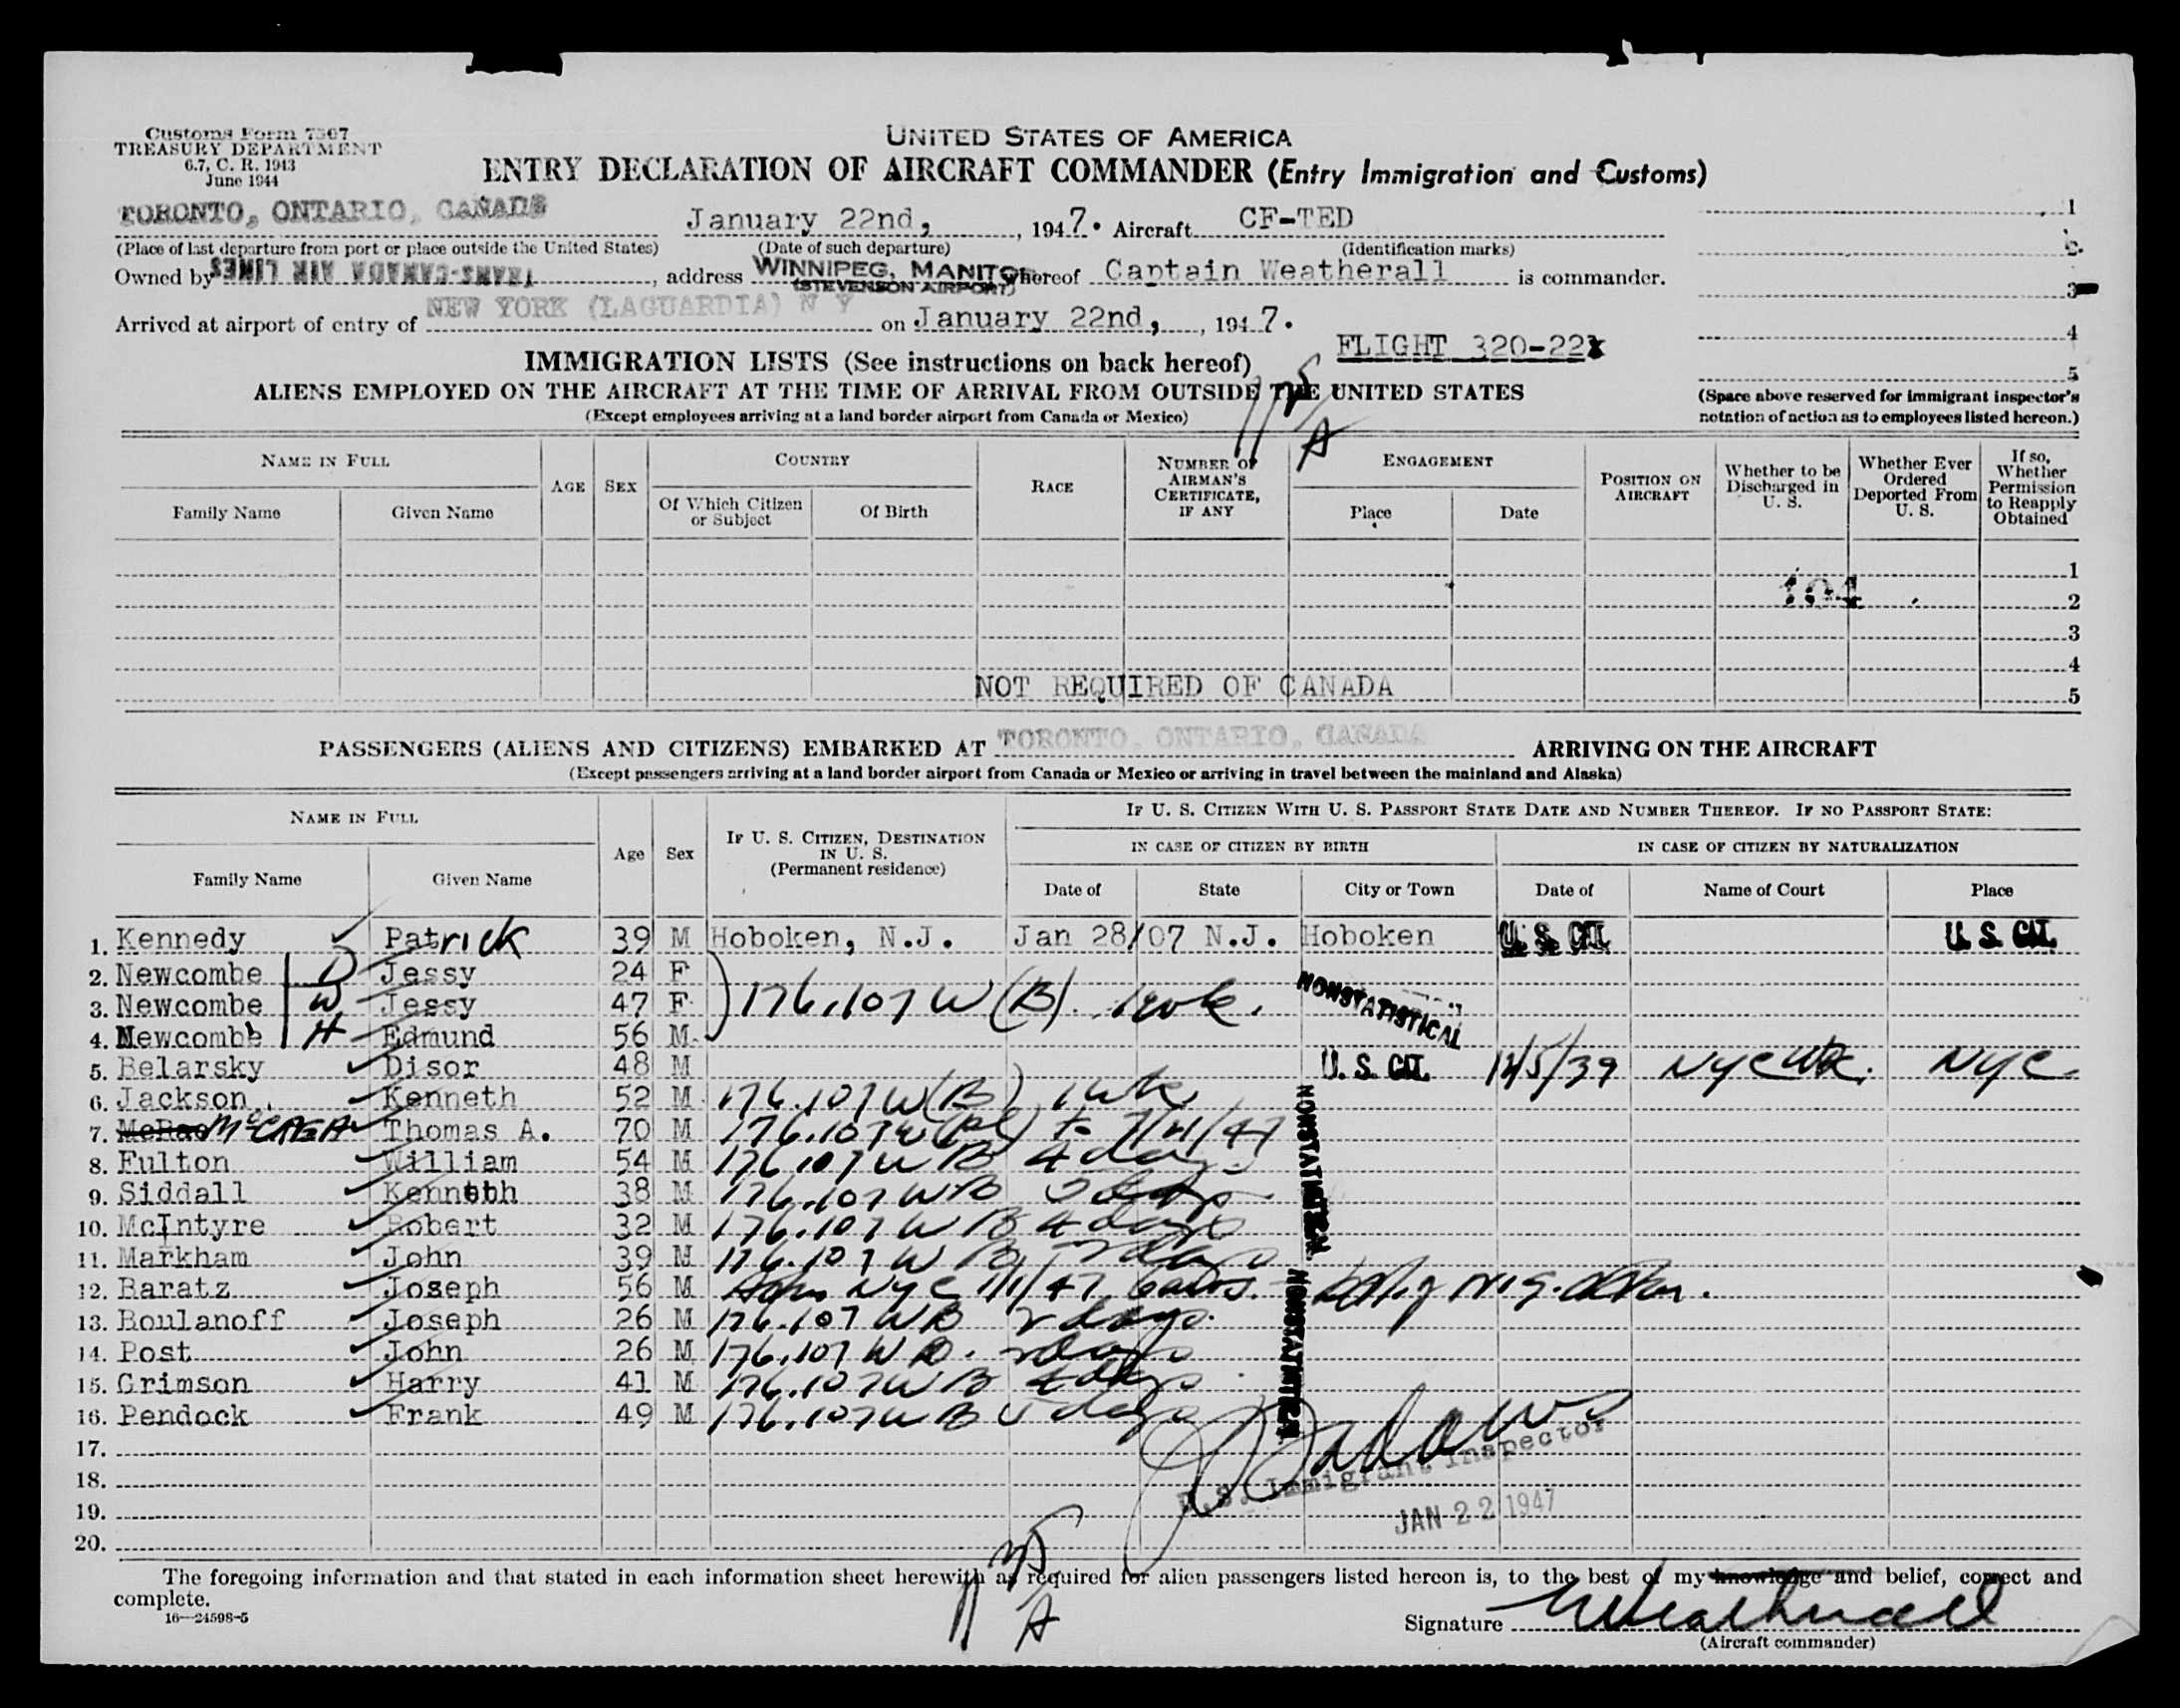 Customs Form 7507
TREASURY DEPARTMENT
6.7, C. R. 1943
June 1944
UNITED STATES OF AMERICA
ENTRY DECLARATION OF AIRCRAFT COMMANDER (Entry Immigration and Customs)
TORONTO, ONTARIO, CANADA January 22nd, , 1947. Aircraft CF-TED
(Place of last departure from port or place outside the United States) (Date of such departure) (Identification marks)
Owned by TRANS-CANADA AIR LINES, address WINNIPEG, MANITOBA whereof Captain Weatherall is commander.
(STEVENSON AIRPORT)
Arrived at airport of entry of NEW YORK (LAGUARDIA) N Y on January 22nd, , 1947.
1
2
3
4
5
FLIGHT 320-22
IMMIGRATION LISTS (See instructions on back hereof)
ALIENS EMPLOYED ON THE AIRCRAFT AT THE TIME OF ARRIVAL FROM OUTSIDE THE UNITED STATES
(Except employees arriving at a land border airport from Canada or Mexico)
(Space above reserved for immigrant inspector's
notation of action as to employees listed hereon.)
NAME IN FULL AGE SEX COUNTRY RACE NUMBER OF AIRMAN'S CERTIFICATE, IF ANY ENGAGEMENT POSITION ON AIRCRAFT Whether to be Discharged in U. S. Whether Ever Ordered Deported From U. S. If so, Whether Permission to Reapply Obtained
Family Name Given Name Of Which Citizen or Subject Of Birth Place Date
1
104
2
3
4
NOT REQUIRED OF CANADA 5
PASSENGERS (ALIENS AND CITIZENS) EMBARKED AT TORONTO, ONTARIO, CANADA ARRIVING ON THE AIRCRAFT
(Except passengers arriving at a land border airport from Canada or Mexico or arriving in travel between the mainland and Alaska)
NAME IN FULL Age Sex IF U. S. CITIZEN, DESTINATION IN U. S. (Permanent residence) IF U. S. CITIZEN WITH U. S. PASSPORT STATE DATE AND NUMBER THEREOF. IF NO PASSPORT STATE:
IN CASE OF CITIZEN BY BIRTH IN CASE OF CITIZEN BY NATURALIZATION
Family Name Given Name Date of State City or Town Date of Name of Court Place
1. Kennedy Patrick 39 M Hoboken, N.J. Jan 28/07 N.J. Hoboken U. S. CIT. U. S. CIT.
2. Newcombe D Jessy 24 F
3. Newcombe W Jessy 47 F 176.107 W (B) 1 wk. NONSTATISTICAL
4. Newcombe H Edmund 56 M
5. Belarsky Disor 48 M U. S. CIT. 12/5/39 NYC NYC
6. Jackson Kenneth 52 M 176.107 W (B) 1 wk
7. McCrea Thomas A. 70 M 176.107 W (Pl) to
8. Fulton William 54 M 176.107 W B 4 days
9. Siddall Kenneth 38 M 176.107 W B days
10. McIntyre Robert 32 M 176.107 W B 4 days
11. Markham John 39 M 176.107 W B 2 days
12. Baratz Joseph 56 M NYC 1/1/47
13. Boulanoff Joseph 26 M 176.107 W B 2 days
14. Post John 26 M 176.107 W B. 2 days
15. Grimson Harry 41 M 176.107 W B 4 days
16. Pendock Frank 49 M 176.107 W B days
NONSTATISTICAL
NONSTATISTICAL
17.
18.
U.S. Immigrant Inspector
19.
JAN 22 1947
20.
The foregoing information and that stated in each information sheet herewith as required for alien passengers listed hereon is, to the best of my knowledge and belief, correct and
complete.
16—24598-5
Signature Weatherall
(Aircraft commander)